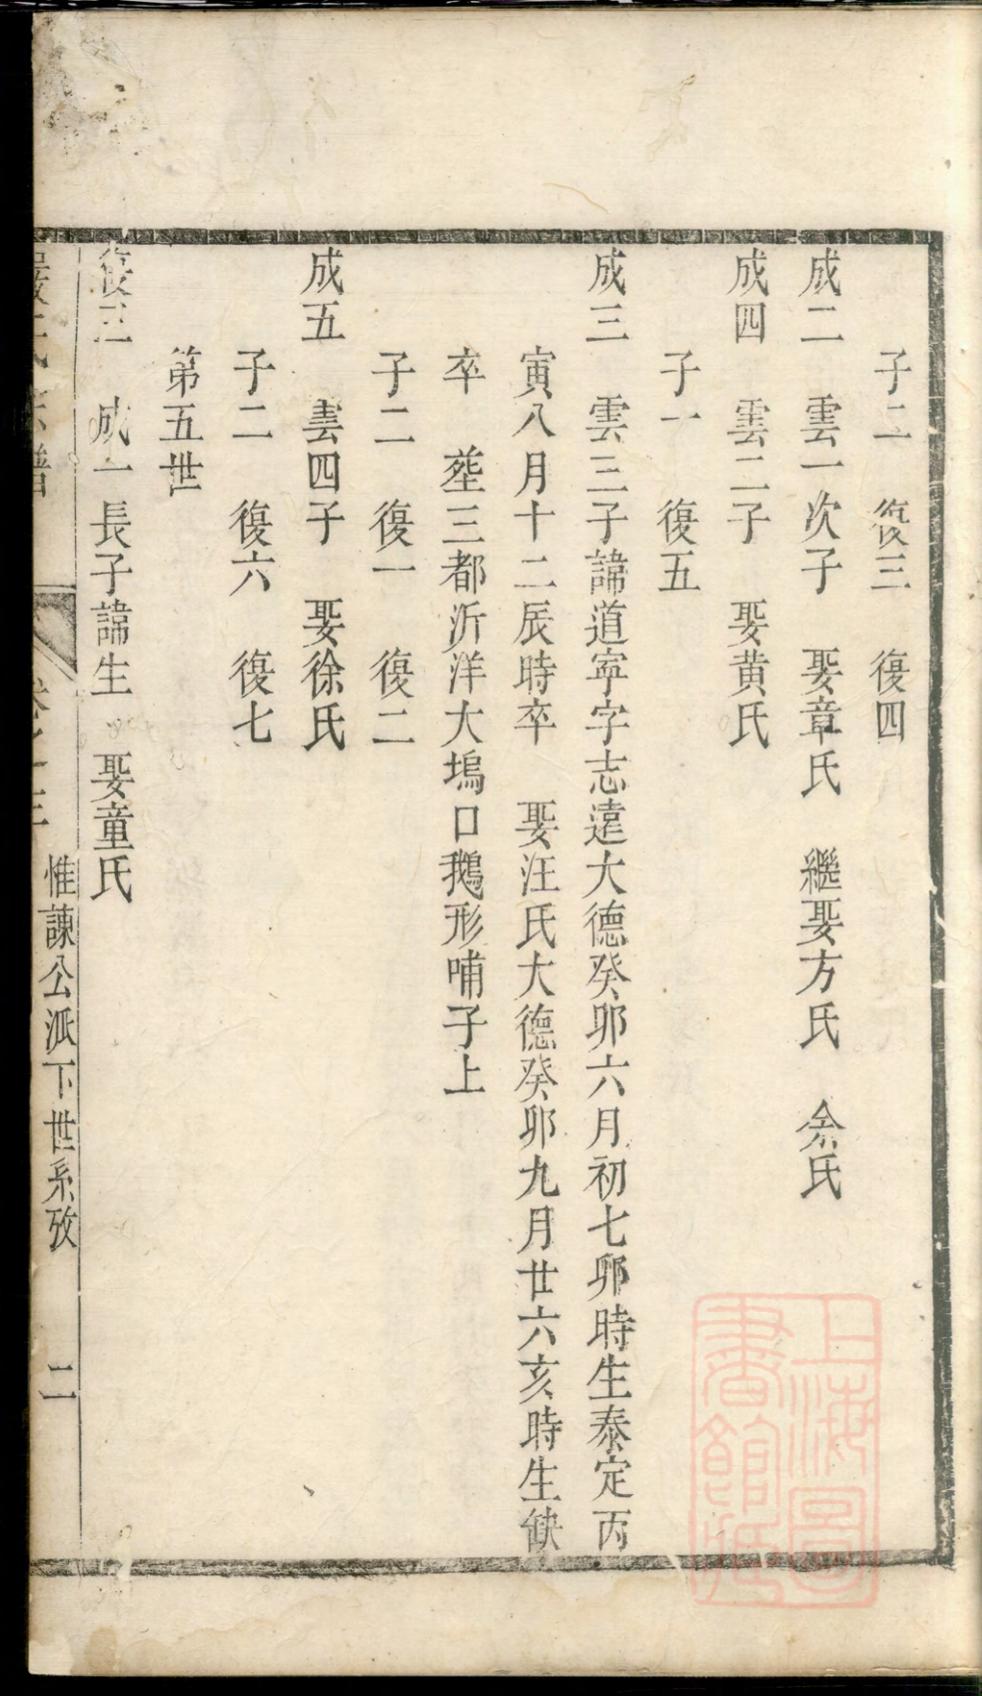 子二　復三　復四
成二　雲一次子　娶章氏　繼娶方氏　余氏
成四　雲二子　娶黃氏
子一　復五
成三　雲三子諱道寧字志遠大德癸卯六月初七卯時生泰定丙
寅八月十二辰時卒　娶汪氏大德癸卯九月廿六亥時生缺
卒　塟三都沂洋大塢口鵝形哺子上
子二　復一　復二
成五　雲四子　娶徐氏
子二　復六　復七
第五世
復三　成一長子諱生　娶童氏
惟諫公派下世系攷　二
上海圖
書館藏